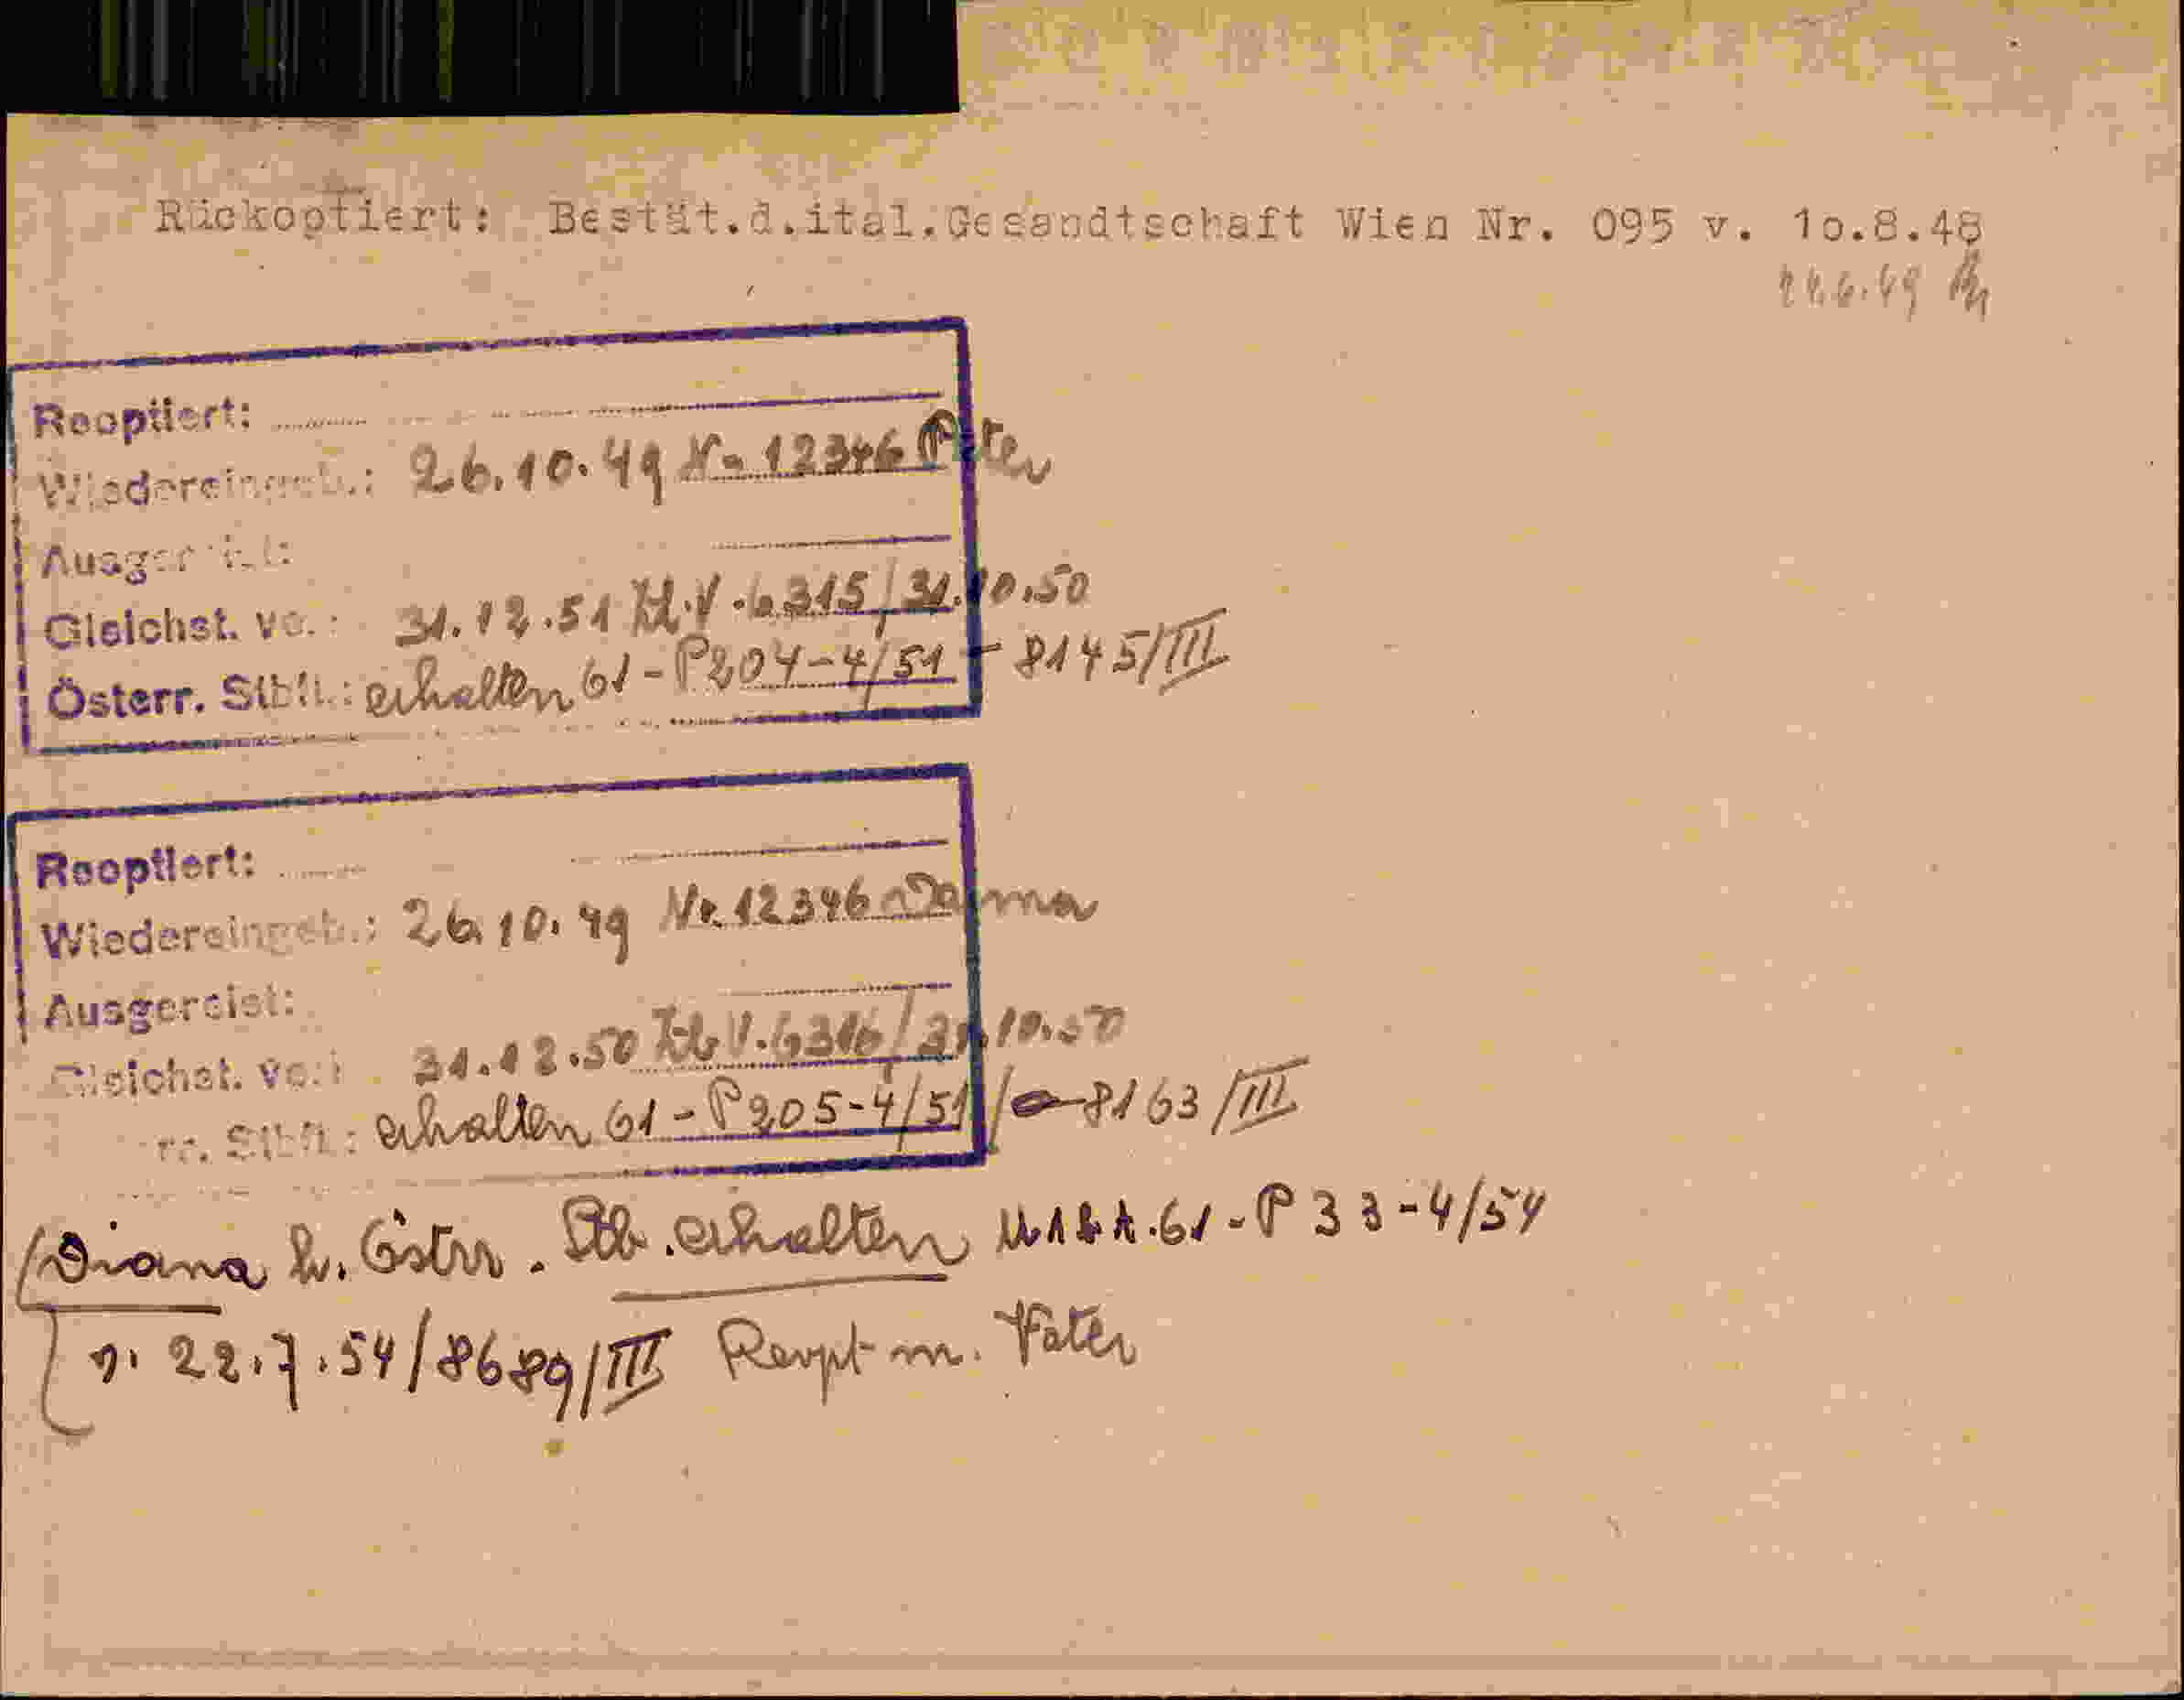 Rückoptiert: Bestät.d.ital.Gesandtschaft Wien Nr. 095 v. 10.8.48
Reoptiert:
Wiedereingeb.: 26.10.49 Nr 12346 Peter
Ausgereist:
Gleichst. vo.: 31.12.51 Zl.V.6315/31.10.50
Österr. Stbft.: erhalten 61-P204-4/51-8145/III
Reoptiert:
Wiedereingeb.: 26.10.49 Nr. 12346
Ausgereist:
Gleichst. vo.: 31.12.50 Zl. V.6316/31.10.50
rr. Stbft.: erhalten 61-P205-4/51/-8163/III
Diana h. Östrr. Stb. erhalten 61-P33-4/54
v. 22.7.54/8689/III Reopt m. Vater